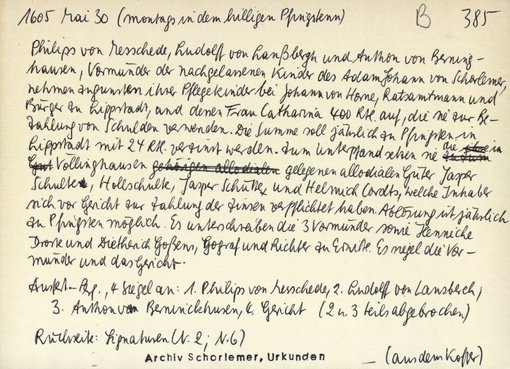 1605 Mai 30 (montags in dem hilligen Pfingsten) B 385
Philips von Meschede, Rudolff von Lanßbergh und Anthon von Berning-
hausen, Vormünder der nachgelassenen Kinder des Adam Johann von Schorlemer,
nehmen zugunsten ihrer Pflegekinder bei Johann von Horne, Ratsamtmann und
Bürger zu Lippstadt, und deren Frau Catharina 400 Rtl. auf, die sie zur Be-
zahlung von Schulden verwenden. Die Summe soll jährlich zu Pfingsten in
Lippstadt mit 24 Rtl. verzinst werden. Zum Unterpfand setzen sie die in
Vollinghausen gehörigen allodialen gelegenen allodialen Güter Jasper
Schulte, Hollschulte, Jasper Schütte und Helmich Cordts, welche Inhaber
sich vor Gericht zur Zahlung der Zinsen verpflichtet haben. Ablösung ist jährlich
zu Pfingsten möglich. Es unterschreiben die 3 Vormünder sowie Henniche
Droste und Dietherich Goßens, Gograf und Richter zu Erwitte. Es siegel die Vor-
münder und das Gericht.
Ausf.-Pg., 4 Siegel an: 1. Philips von Meschede, 2. Rudolf von Lansberch,
3. Anthon von Berninckhusen, 4. Gericht (2 u. 3 teils abgebrochen)
Rückseite: Signaturen (N. 2; N. 6)
Archiv Schorlemer, Urkunden
– (aus dem Koffer)